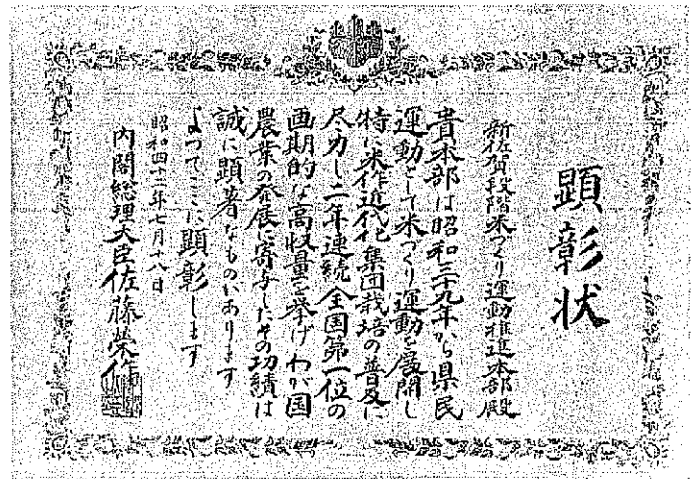 顕彰状
新佐賀段階米づくり運動推進本部殿
貴本部は昭和三十九年から県民
運動として米づくり運動を展開し
特に米作近代化集団栽培の普及に
尽力し二年連続全国第一位の
画期的な高収量を挙げわが国
農業の発展に寄与したその功績は
誠に顕著なものがあります
よつてここに顕彰します
昭和四十二年七月十八日
内閣総理大臣佐藤榮作